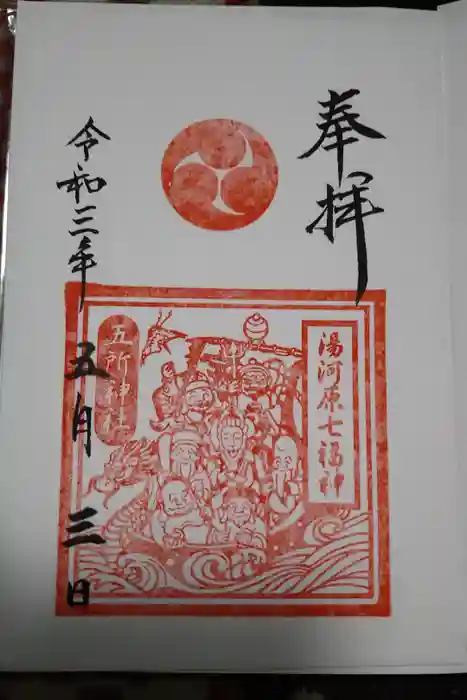 奉拝
湯河原七福神
五所神社
令和三年五月三日